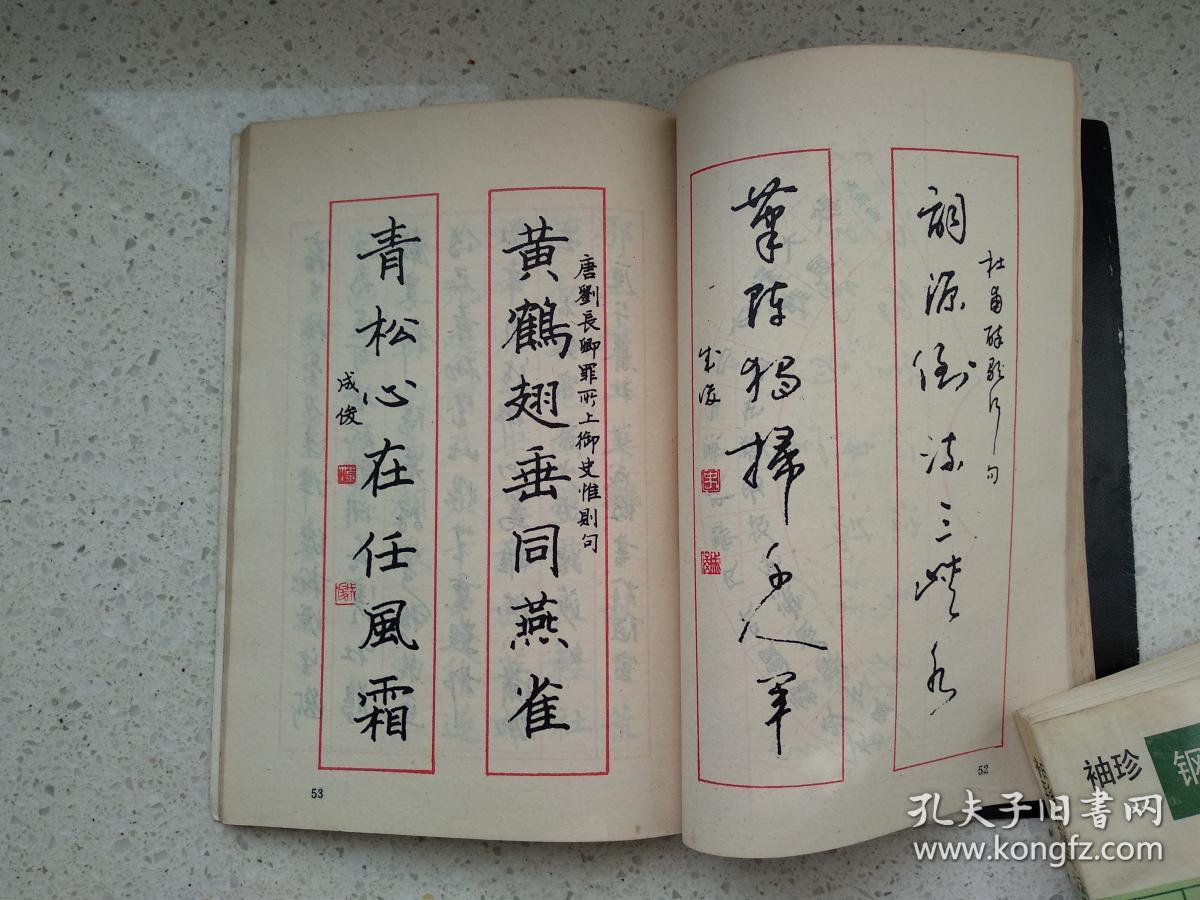 詞源倒流三峽水
杜甫醉歌行句
筆陣獨掃千人軍
成俊
52
黄鶴翅垂同燕雀
唐劉長卿罪所上御史惟則句
青松心在任風霜
成俊
53
袖珍
钢
孔夫子旧书网
www.kongfz.com